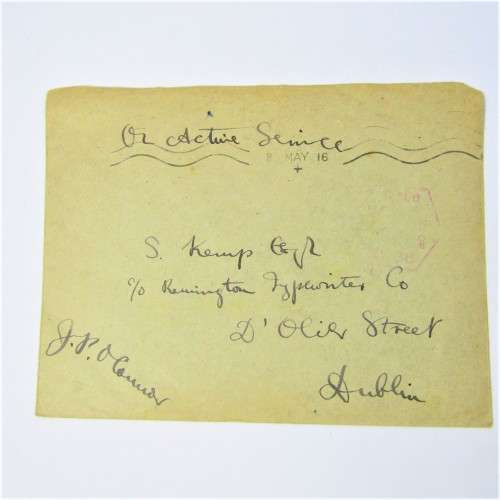 On Active Service
8 MAY 16
S. Kemp Esqr
c/o Remington Typewriter Co
D'Olier Street
Dublin
J.P. O'Connor